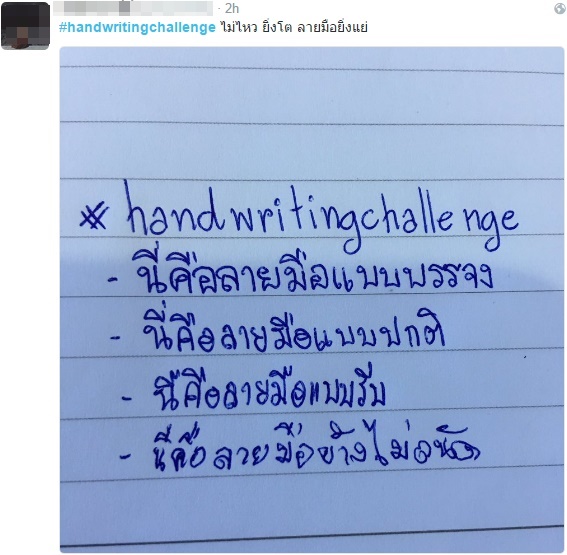 · 2h
#handwritingchallenge ไม่ไหว ยิ่งโต ลายมือยิ่งแย่
# handwritingchallenge
- นี่คือลายมือแบบบรรจง
- นี่คือลายมือแบบปกติ
- นี่คือลายมือแบบรีบ
- นี่คือลายมือข้างไม่ถนัด